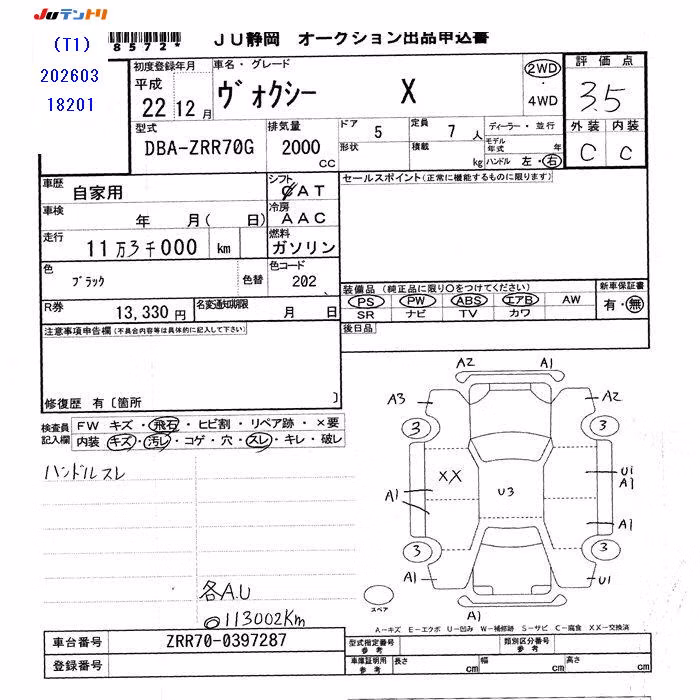 JUテントリ
(T1)
202603
18201
8572*
JU静岡 オークション出品申込書
初度登録年月
平成
22 12月
車名・グレード
ヴォクシー X
2WD
・
4WD
評価点
3.5
外装 内装
C C
型式
DBA-ZRR70G
排気量
2000
cc
ドア 5
形状
定員 7 人
積載 kg
ディーラー・並行
モデル年式 年
ハンドル 左・右
車歴 自家用
車検 年 月( 日)
走行 11万3千000 km
シフト
CAT
冷房
AAC
燃料
ガソリン
色 ブラック 色替
色コード
202
R券 13,330円
名変通知期限 月 日
セールスポイント(正常に機能するものに限ります)
装備品 (純正品に限り○をつけてください)
PS PW ABS エアB AW
SR ナビ TV カワ
新車保証書
有・無
後日品
注意事項申告欄(不具合内容等は具体的に記入して下さい)
修復歴 有〔箇所 〕
検査員記入欄
FW キズ・飛石・ヒビ割・リペア跡・×要
内装・キズ・汚レ・コゲ・穴・スレ・キレ・破レ
ハンドルスレ
各A.U
113002Km
A2 A1
A3 A2
3 3
XX U3 U1
A1
A1 A1
3 3
A1 U1
A1
スペア
A-キズ E-エクボ U-凹み W-補修跡 S-サビ C-腐食 XX-交換済
車台番号 ZRR70-0397287
登録番号
型式指定番号
参考
類別区分番号
参考
車庫証明用
参考
長さ cm 幅 cm 高さ cm